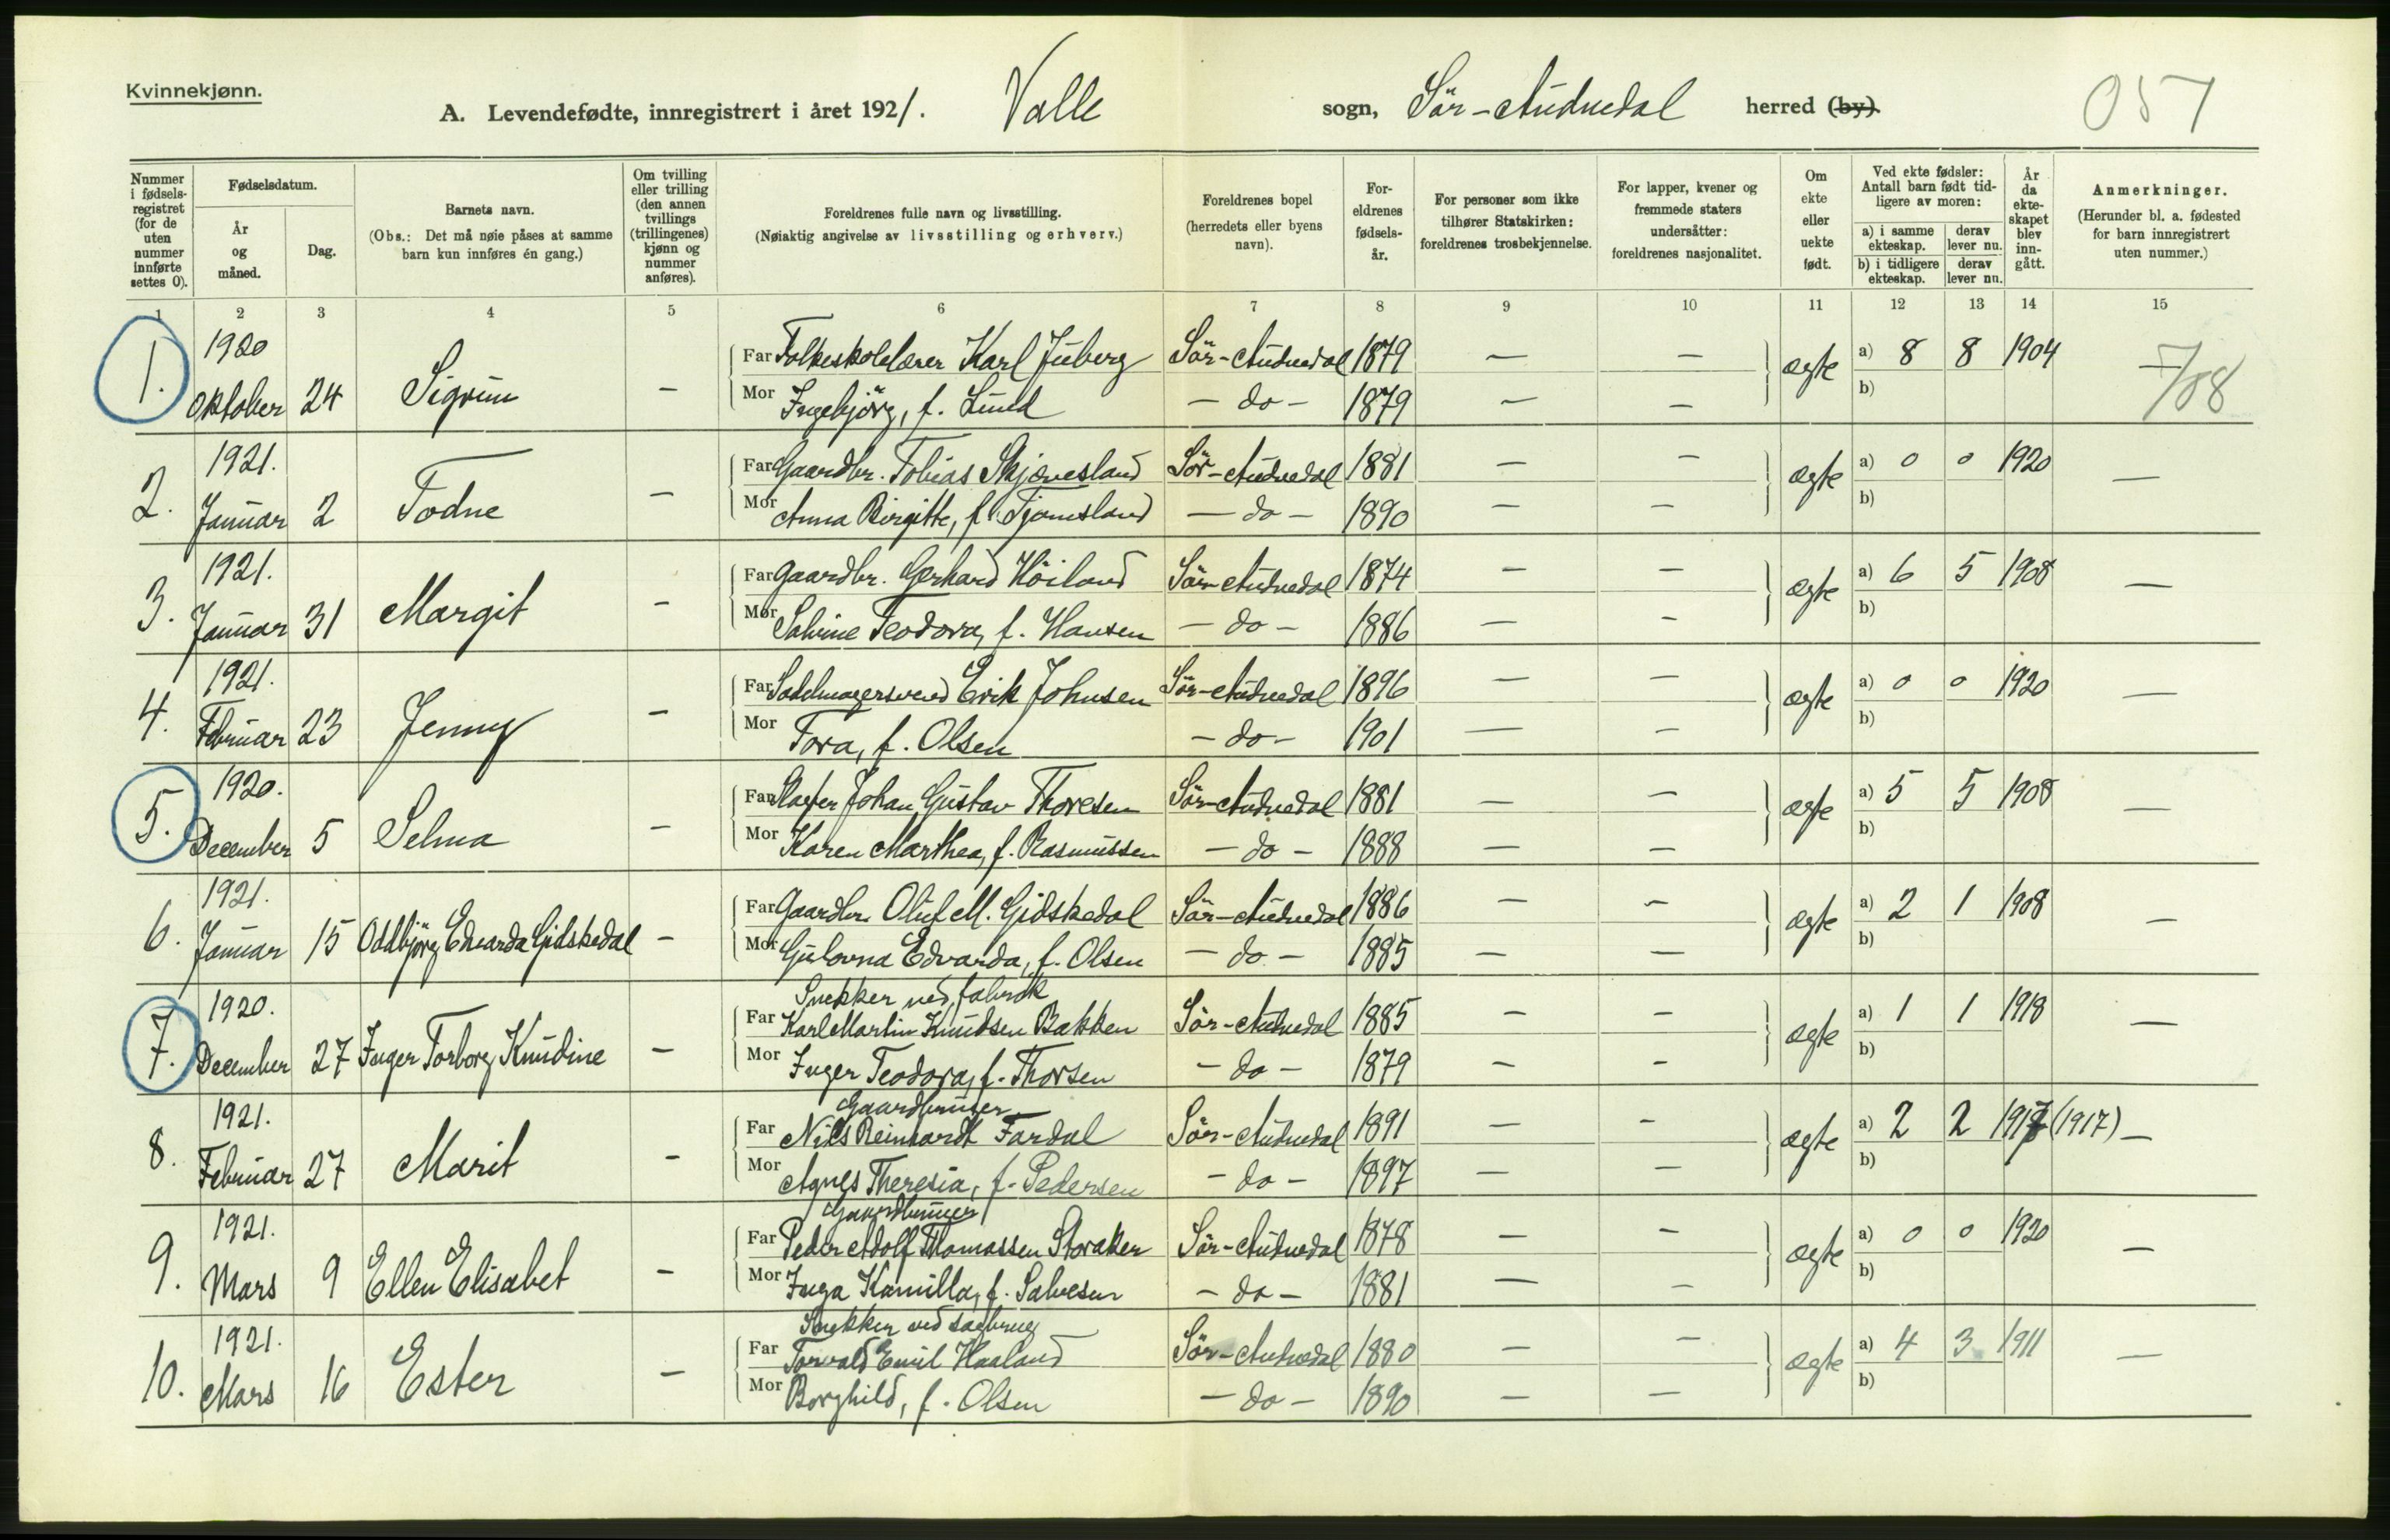 Kvinnekjønn.
A. Levendefødte, innregistrert i året 1921. Valle sogn, Sör-Audnedal herred (by).
057
Nummer i fødsels-registret (for de uten nummer innførte settes 0).
Fødselsdatum.
År og måned.
Dag.
Barnets navn.
(Obs.: Det må nøie påses at samme barn kun innføres én gang.)
Om tvilling eller trilling (den annen tvillings (trillingenes) kjønn og nummer anføres).
Foreldrenes fulle navn og livsstilling.
(Nøiaktig angivelse av livsstilling og erhverv.)
Foreldrenes bopel (herredets eller byens navn).
For-eldrenes fødsels-år.
For personer som ikke tilhører Statskirken: foreldrenes trosbekjennelse.
For lapper, kvener og fremmede staters undersåtter: foreldrenes nasjonalitet.
Om ekte eller uekte født.
Ved ekte fødsler: Antall barn født tid-ligere av moren:
a) i samme ekteskap. derav lever nu.
b) i tidligere ekteskap. derav lever nu.
År da ekte-skapet blev inn-gått.
Anmerkninger.
(Herunder bl. a. fødested for barn innregistrert uten nummer.)
1 2 3 4 5 6 7 8 9 10 11 12 13 14 15
1. 1920 Oktober 24 Sigrun — Far Folkeskolelærer Karl Juberg Sör-Audnedal 1879 — — ægte a) 8 8 1904 —
7/08
Mor Ingebjörg, f. Lund — do — 1879 — — b)
2. 1921. Januar 2 Todne — Far Gaardbr. Tobias Skjævesland Sör-Audnedal 1881 — — ægte a) 0 0 1920 —
Mor Anna Birgitte, f. Tjomsland — do — 1890 — — b)
3. 1921. Januar 31 Margit — Far Gaardbr. Gerhard Höiland Sör-Audnedal 1874 — — ægte a) 6 5 1908 —
Mor Sabine Teodora, f. Hansen — do — 1886 — — b)
4. 1921. Februar 23 Jenny — Far Sadelmagersvend Erik Johnsen Sör-Audnedal 1896 — — ægte a) 0 0 1920 —
Mor Tora, f. Olsen — do — 1901 — — b)
5. 1920. December 5 Selma — Far Johan Gustav Thoresen Sör-Audnedal 1881 — — ægte a) 5 5 1908 —
Mor Karen Marthea, f. Rasmussen — do — 1888 — — b)
6. 1921. Januar 15 Oddbjörg Edvarda Gidskedal — Far Gaardbr. Oluf M. Gidskedal Sör-Audnedal 1886 — — ægte a) 2 1 1908 —
Mor Gulovna Edvarda, f. Olsen — do — 1885 — — b)
Snekker ved fabrik
7. 1920. December 27 Inger Torborg Knudine — Far Karl Martin Knudsen Bakken Sör-Audnedal 1885 — — ægte a) 1 1 1918 —
Mor Inger Teodora, f. Thorsen — do — 1879 — — b)
Gaardbruker
8. 1921. Februar 27 Marit — Far Nils Reinhardt Fardal Sör-Audnedal 1891 — — ægte a) 2 2 1917 (1917) —
Mor Agnes Theresia, f. Pedersen — do — 1897 — — b)
Gaardbruker
9. 1921. Mars 9 Ellen Elisabet — Far Peder Adolf Thomassen Storaker Sör-Audnedal 1878 — — ægte a) 0 0 1920 —
Mor Inga Kamilla, f. Salvesen — do — 1881 — — b)
Snekker ved sagbrug
10. 1921. Mars 16 Ester — Far Torvald Emil Haaland Sör-Audnedal 1880 — — ægte a) 4 3 1911 —
Mor Borghild, f. Olsen — do — 1890 — — b)